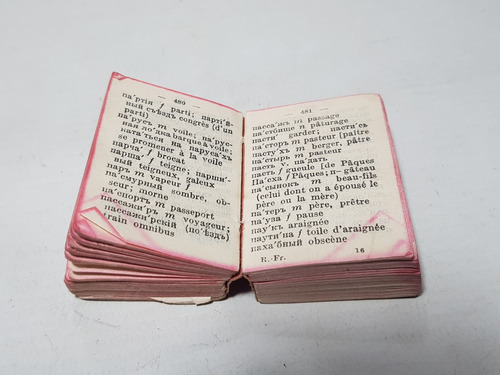 — 480 —
па´ртія f parti; парті´й-
ный съѣздъ congrès (d'un
parti)
па´русъ m voile; па´рус-
ная ло´дка barque à voile;
ката´ться на паруса´хъ
se promener à la voile
парча´ f brocat
парша´ f teigne; парши´-
вый teigneux, galeux
паръ m vapeur
па´смурный sombre, ob-
scur; morne
па´спортъ m passeport
пассажи´ръ m voyageur;
пассажи´рскій (по´ѣздъ)
train omnibus
— 481 —
пасса´жъ m passage
па´стбище n pâturage
пасти´ garder; пасти´съ
па´сторъ m pasteur [paître
пасту´хъ m berger, pâtre
па´стырь m pasteur
пасть v. па´дать
пасть f gueule [de Pâques
Па´сха f Pâques; п-gâteau
па´сынокъ m beau-fils
(celui dont on a épousé le
père ou la mère)
па´теръ m père, prêtre
па´уза f pause
пау´къ araignée
паути´на f toile d'araignée
паха´бный obscène
R.-Fr. 16